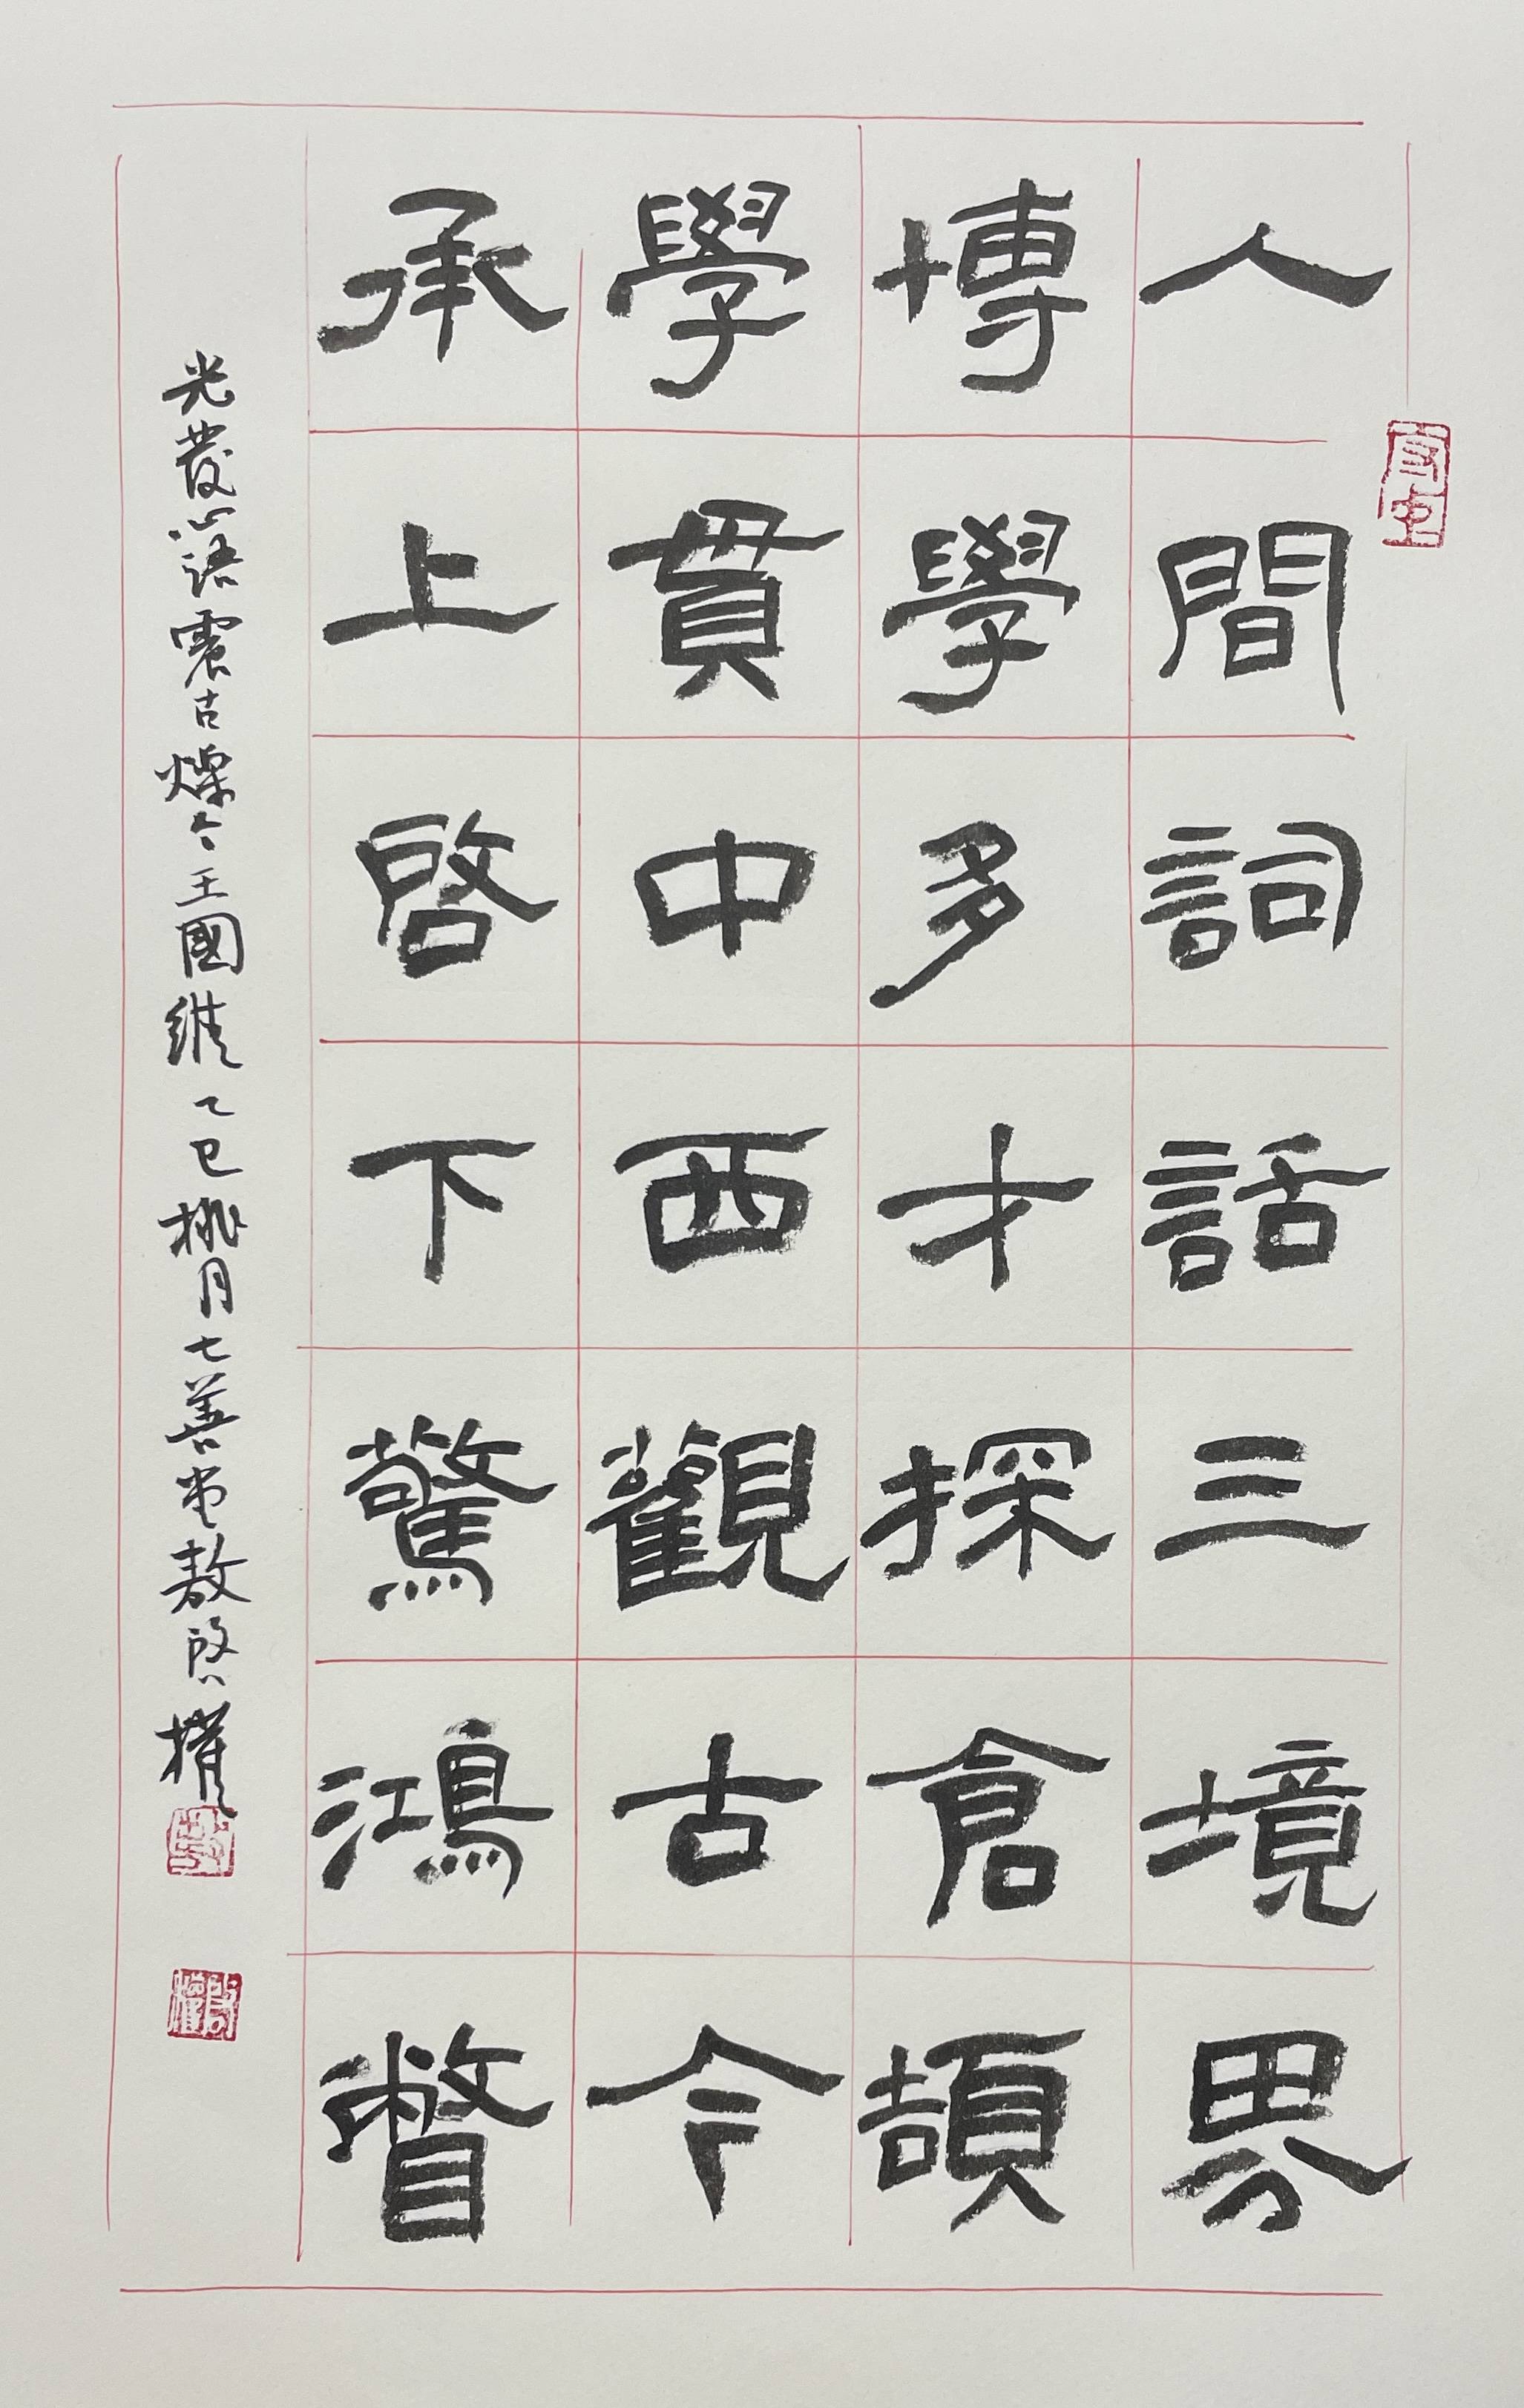 人間詞話三境界
博學多才探倉頡
學貫中西觀古今
承上啓下驚鴻瞥
光發心語震古爍今王國維乙巳桃月七善堂敖啟權
啟權